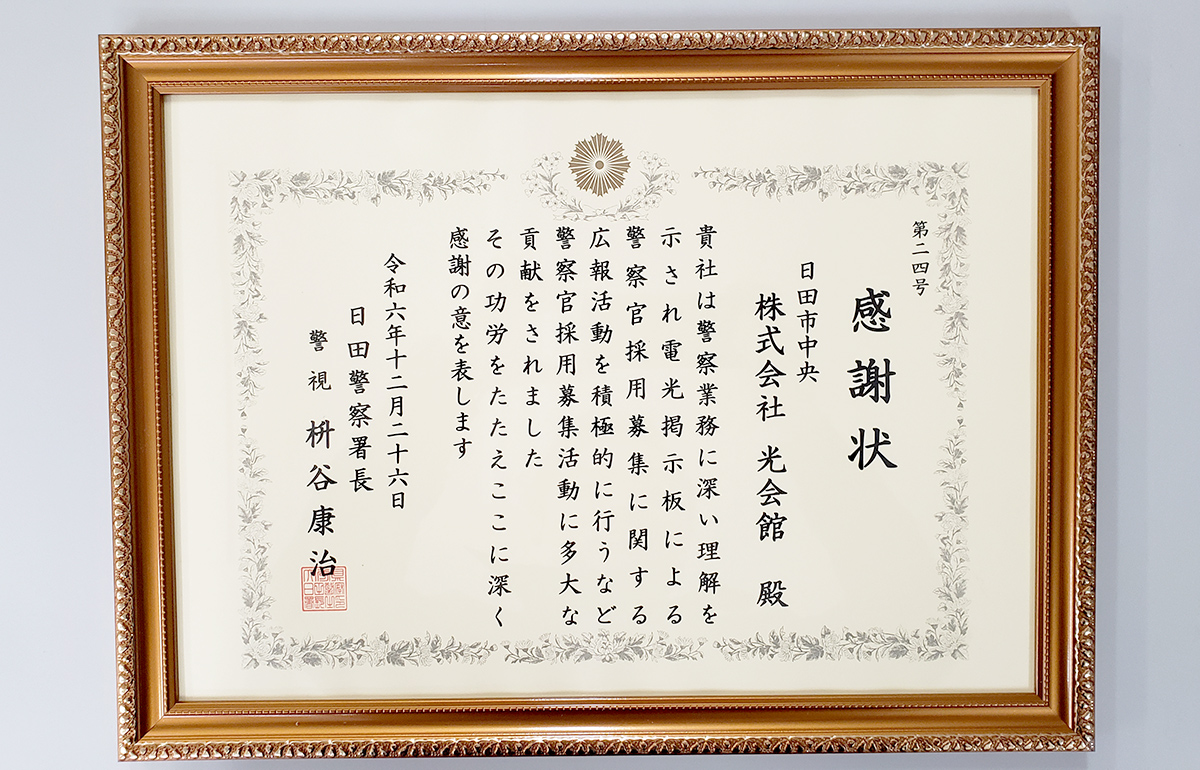 第二四号
感謝状
日田市中央
株式会社 光会館 殿
貴社は警察業務に深い理解を
示され電光掲示板による
警察官採用募集に関する
広報活動を積極的に行うなど
警察官採用募集活動に多大な
貢献をされました
その功労をたたえここに深く
感謝の意を表します
令和六年十二月二十六日
日田警察署長
警視 枡谷康治